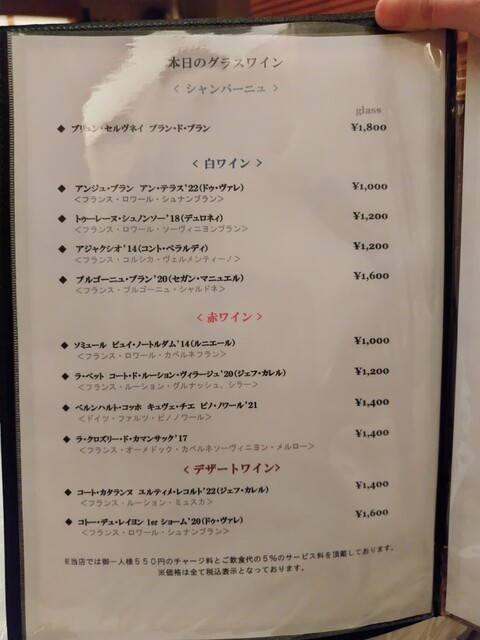 本日のグラスワイン
〈 シャンパーニュ 〉
glass
◆ ブリュン・セルヴネイ ブラン・ド・ブラン ¥1,800
〈 白ワイン 〉
◆ アンジュ・ブラン アン・テラス'22(ドゥ・ヴァレ) ¥1,000
<フランス・ロワール・シュナンブラン>
◆ トゥーレーヌ・シュノンソー'18(デュロネィ) ¥1,200
<フランス・ロワール・ソーヴィニヨンブラン>
◆ アジャクシオ'14(コント・ペラルディ) ¥1,200
<フランス・コルシカ・ヴェルメンティーノ>
◆ ブルゴーニュ・ブラン'20(セガン・マニュエル) ¥1,600
<フランス・ブルゴーニュ・シャルドネ>
〈 赤ワイン 〉
◆ ソミュール ピュイ・ノートルダム'14(ルニエール) ¥1,000
<フランス・ロワール・カベルネフラン>
◆ ラ・ベット コート・ド・ルーション・ヴィラージュ'20(ジェフ・カレル) ¥1,200
<フランス・ルーション・グルナッシュ、シラー>
◆ ベルンハルト・コッホ キュヴェ・チエ ピノ・ノワール'21 ¥1,400
<ドイツ・ファルツ・ピノノワール>
◆ ラ・クロズリー・ド・カマンサック'17 ¥1,400
<フランス・オーメドック・カベルネソーヴィニヨン・メルロー>
〈デザートワイン〉
◆ コート・カタランヌ ユルティメ・レコルト'22(ジェフ・カレル) ¥1,400
<フランス・ルーション・ミュスカ>
◆ コトー・デュ・レイヨン 1er ショーム'20(ドゥ・ヴァレ) ¥1,600
<フランス・ロワール・シュナンブラン>
※当店では御一人様550円のチャージ料とご飲食代の5%のサービス料を頂戴しております。
※価格は全て税込表示となっております。